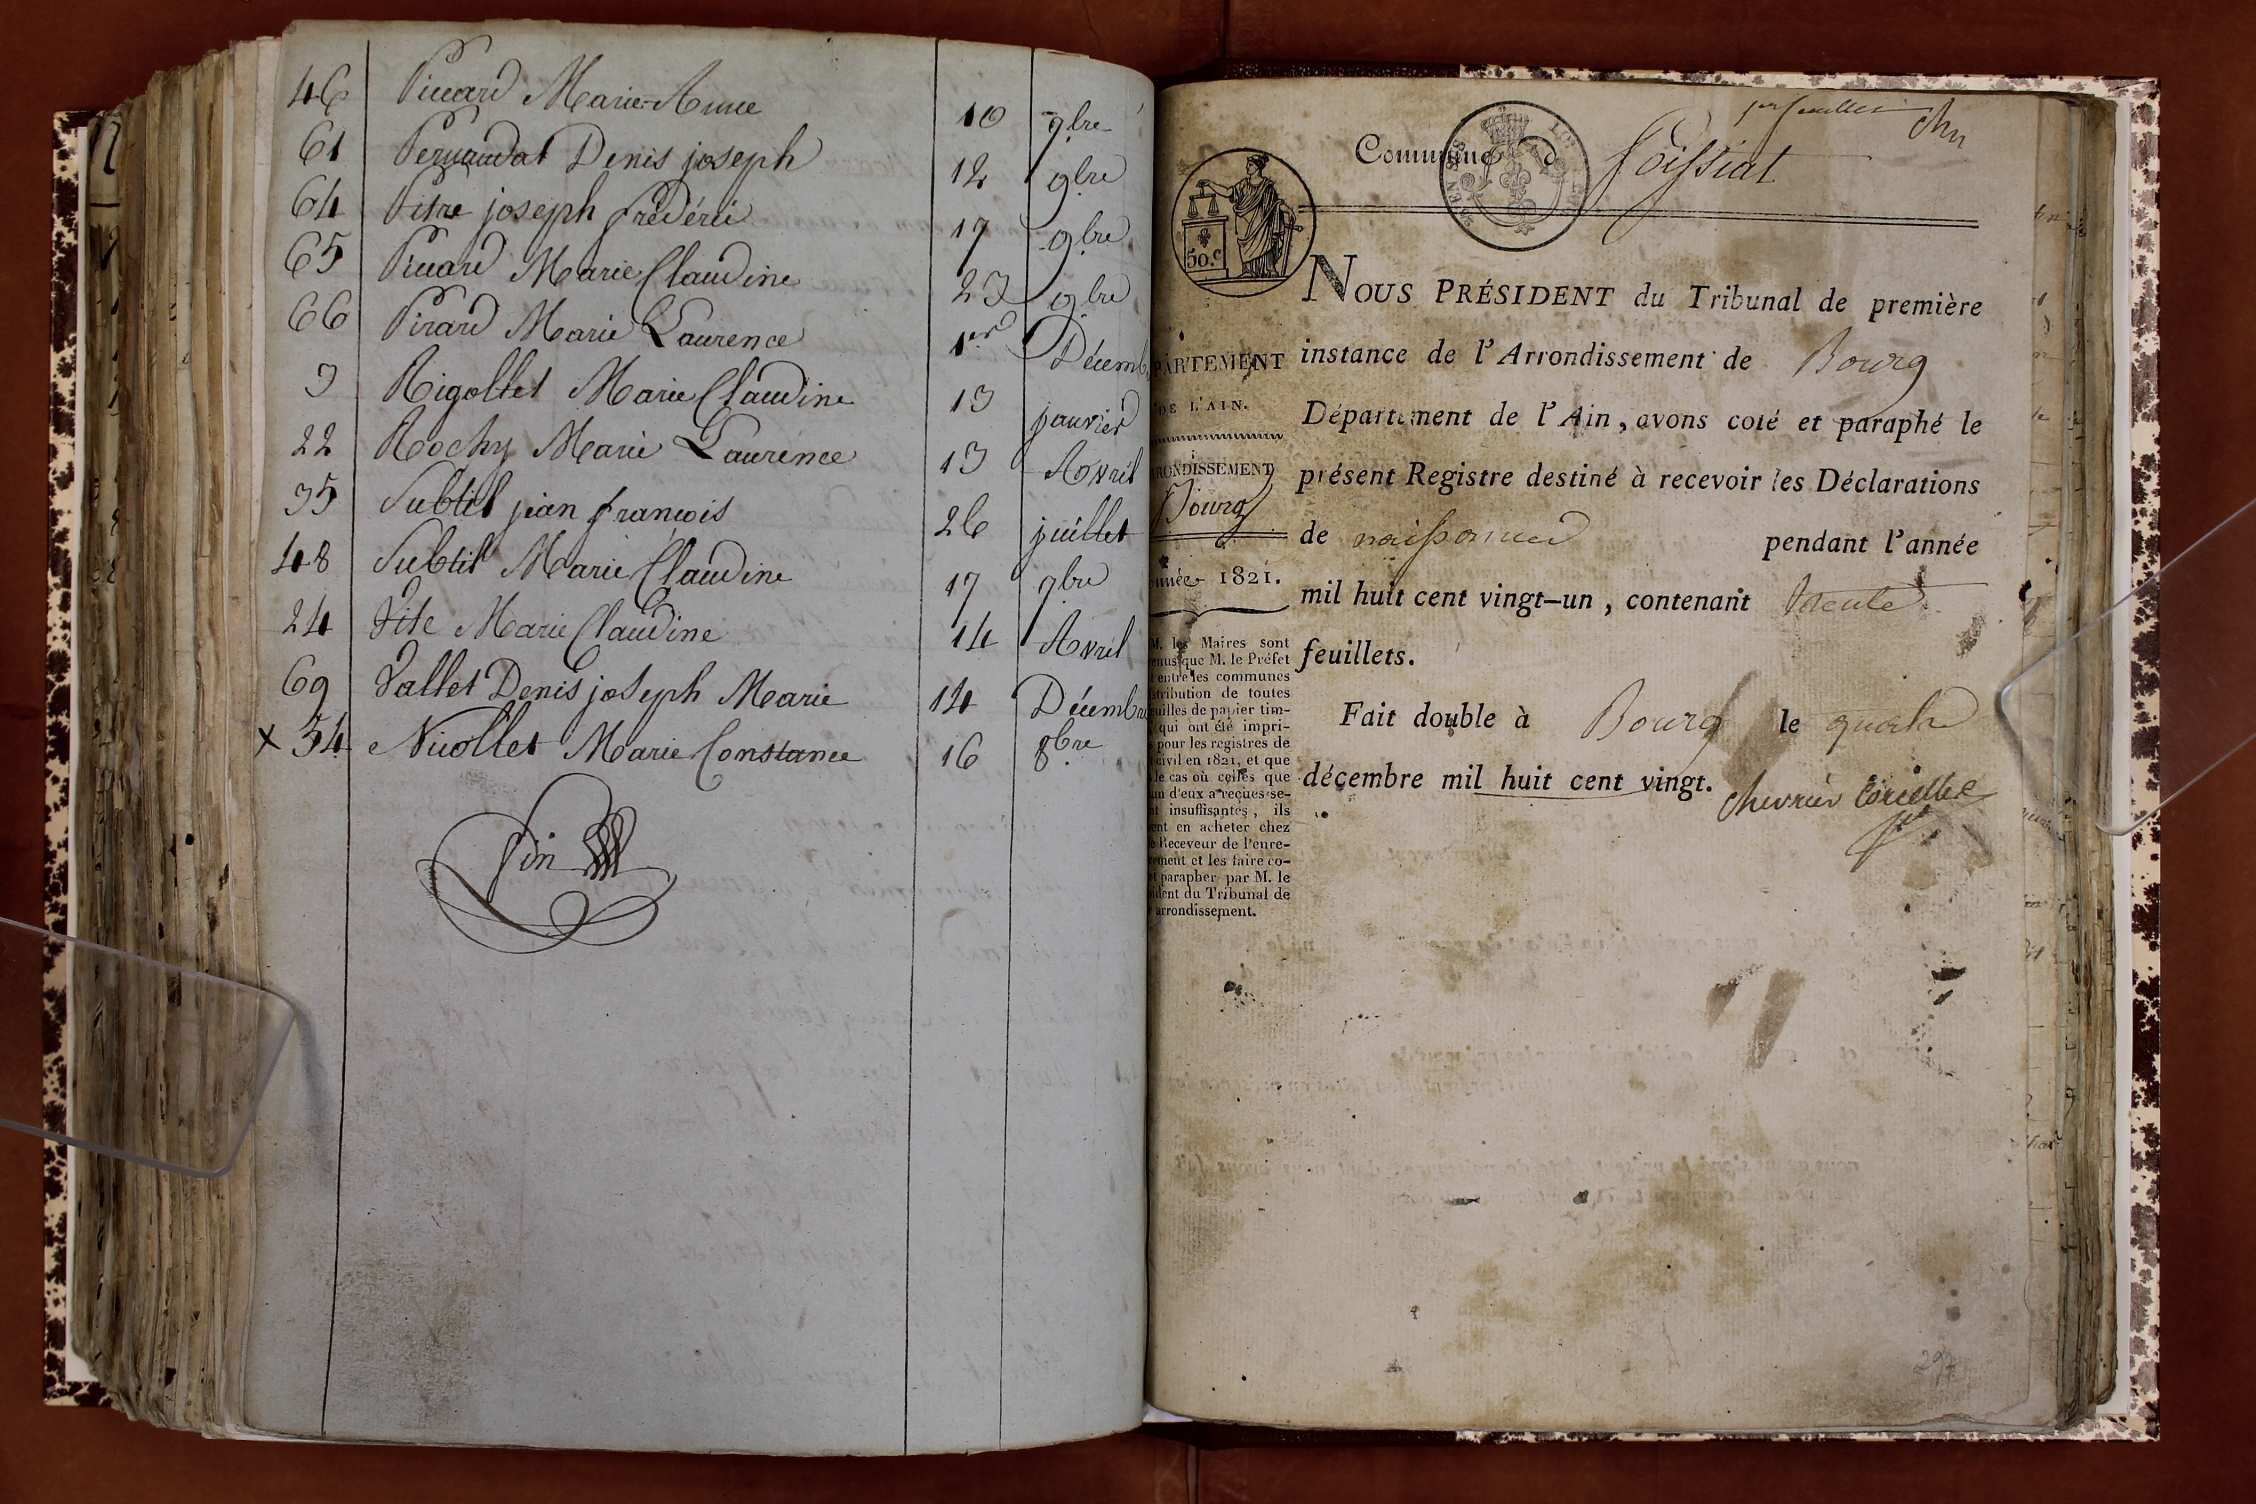 46 Picard Marie Anne 10 7bre
61 Pernaudat Denis joseph 12 9bre
64 Pitre joseph frédéric 17 9bre
65 Picard Marie Claudine 23 9bre
66 Pirard Marie Laurence 1er Décemb
3 Rigollet Marie Claudine 13 janvier
22 Rochy Marie Laurence 13 Avril
35 Subtil jean françois 26 juillet
48 Subtil Marie Claudine 17 9bre
24 Vite Marie Claudine 14 Avril
69 Vallet Denis joseph Marie 14 Décembre
x 54 Nicollet Marie Constance 16 8bre
Fin
1er feuillet
Commune d Foissiat
50.c
NOUS PRÉSIDENT du Tribunal de première
instance de l'Arrondissement de Bourg
Département de l'Ain, avons coté et paraphé le
présent Registre destiné à recevoir les Déclarations
de naissances pendant l'année
mil huit cent vingt-un, contenant trente
feuillets.
Fait double à Bourg le quatre
décembre mil huit cent vingt.
Chevrier Corcelles
PARTEMENT
DE L'AIN.
RONDISSEMENT
Bourg
nnée 1821.
M. les Maires sont
nus que M. le Préfet
entre les communes
tribution de toutes
uilles de papier tim-
qui ont été impri-
pour les registres de
civil en 1821, et que
le cas où celles que
un d'eux a reçues se-
nt insuffisantes, ils
ent en acheter chez
Receveur de l'enre-
ement et les faire co-
t parapher par M. le
ident du Tribunal de
arrondissement.
297